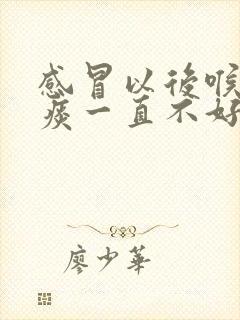 感冒以後喉
痰一直不好
廖少華